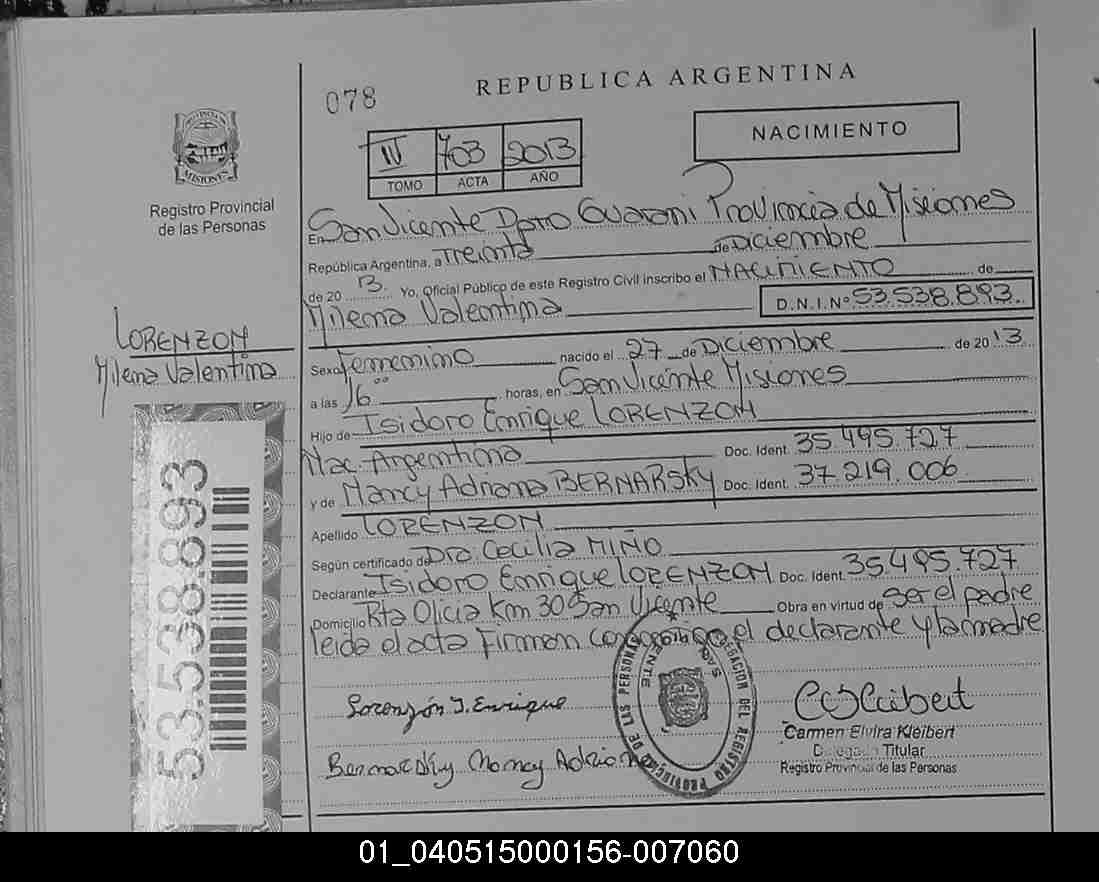 078
REPUBLICA ARGENTINA
PROVINCIA
MISIONES
Registro Provincial
de las Personas
IV 703 2013
TOMO ACTA AÑO
NACIMIENTO
En San Vicente Dpto Guarani Provincia de Misiones
República Argentina, a Treinta de Diciembre
de 20 13. Yo, Oficial Público de este Registro Civil inscribo el NACIMIENTO de
Milena Valentina D.N.I.Nº 53.538.893.
LORENZON
Milena Valentina
Sexo Femenino nacido el 27 de Diciembre de 2013
a las 16 00 horas, en San Vicente Misiones
Hijo de Isidoro Enrique LORENZON
Nac. Argentina Doc. Ident. 35.495.727
y de Nancy Adriana BERNARSKY Doc. Ident. 37.219.006
Apellido LORENZON
Según certificado de Dra Cecilia MIÑO
Declarante Isidoro Enrique LORENZON Doc. Ident. 35.495.727
Domicilio Rta Olicia Km 30 San Vicente Obra en virtud de Ser el padre
leida el acta Firman conmigo el declarante y la madre
53.538.893
Lorenzón I. Enrique
Bernarsky Nancy Adriana
Carmen Elvira Kleibert
Delegada Titular
Registro Provincial de las Personas
DELEGACION DEL REGISTRO PROVINCIAL DE LAS PERSONAS
SAN VICENTE
01_040515000156-007060